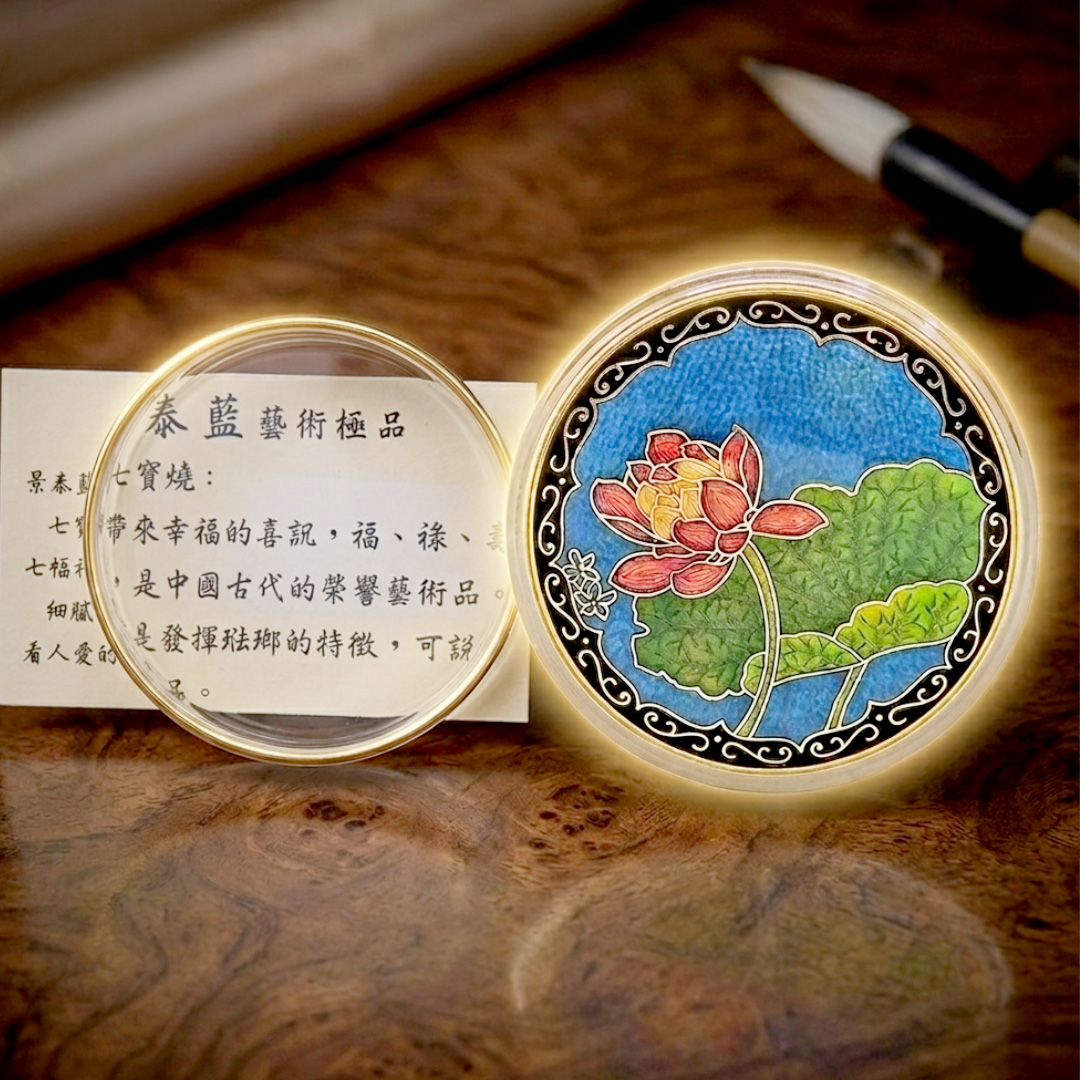 泰藍藝術極品
景泰藍七寶燒：
七寶帶來幸福的喜訊，福、祿、
七幅，是中國古代的榮譽藝術品。
細膩是發揮琺瑯的特徵，可說
看人愛的品。